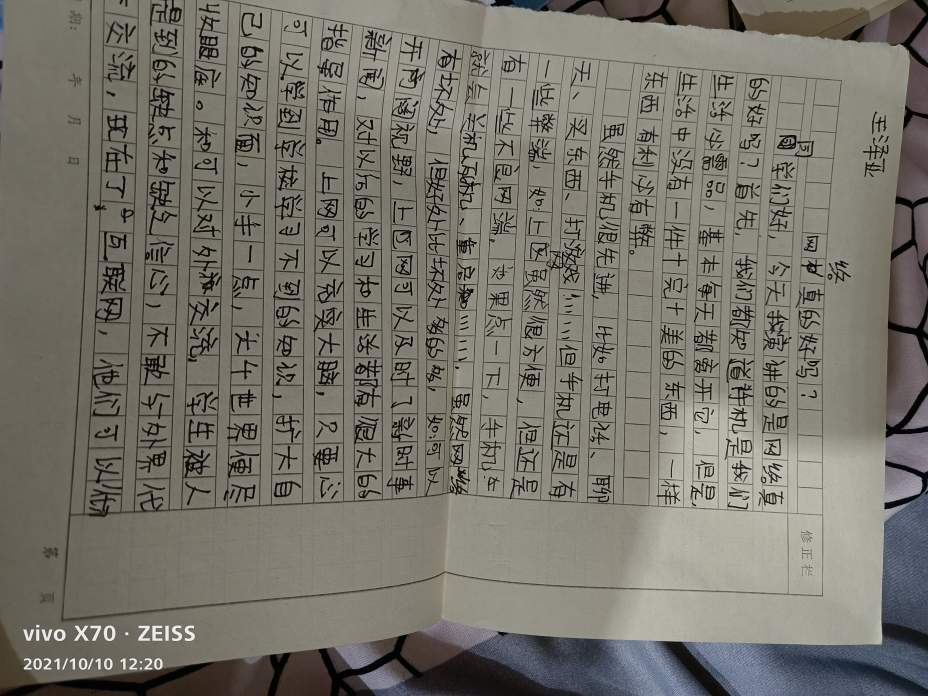 王泽亚
网络真的好吗？
同学们好，今天我演讲的是网络真
的好吗？首先，我们都知道手机是我们
生活必需品，基本每天都离开它，但是
生活中没有一件十完十美的东西，一样
东西有利必有弊。
虽然手机很先进，比如打电话、聊
天、买东西、打游戏……但手机还是有
一些弊端，如：上区虽然很方便，但还是
有一些不良网端，如果点一下，手机
就会关机死机、重启……，虽然网络
有坏处，但好处比坏处多的多，如：可以
开阔视野，上区网可以及时了新时事
新闻，对以后的学习和生活都有很大的
指导作用。上网可以充实大脑，只要心
可以学到学校学习不到的知识，扩大自
己的知识面，小手一点，大千世界便尽
收眼底。和可以对外流交流，学生被人
是到的缺点和缺乏信心，不敢与外界他
交流，现在了，"互联网，他们可以你
修正栏
期： 年 月 日
第 页
vivo X70 · ZEISS
2021/10/10 12:20